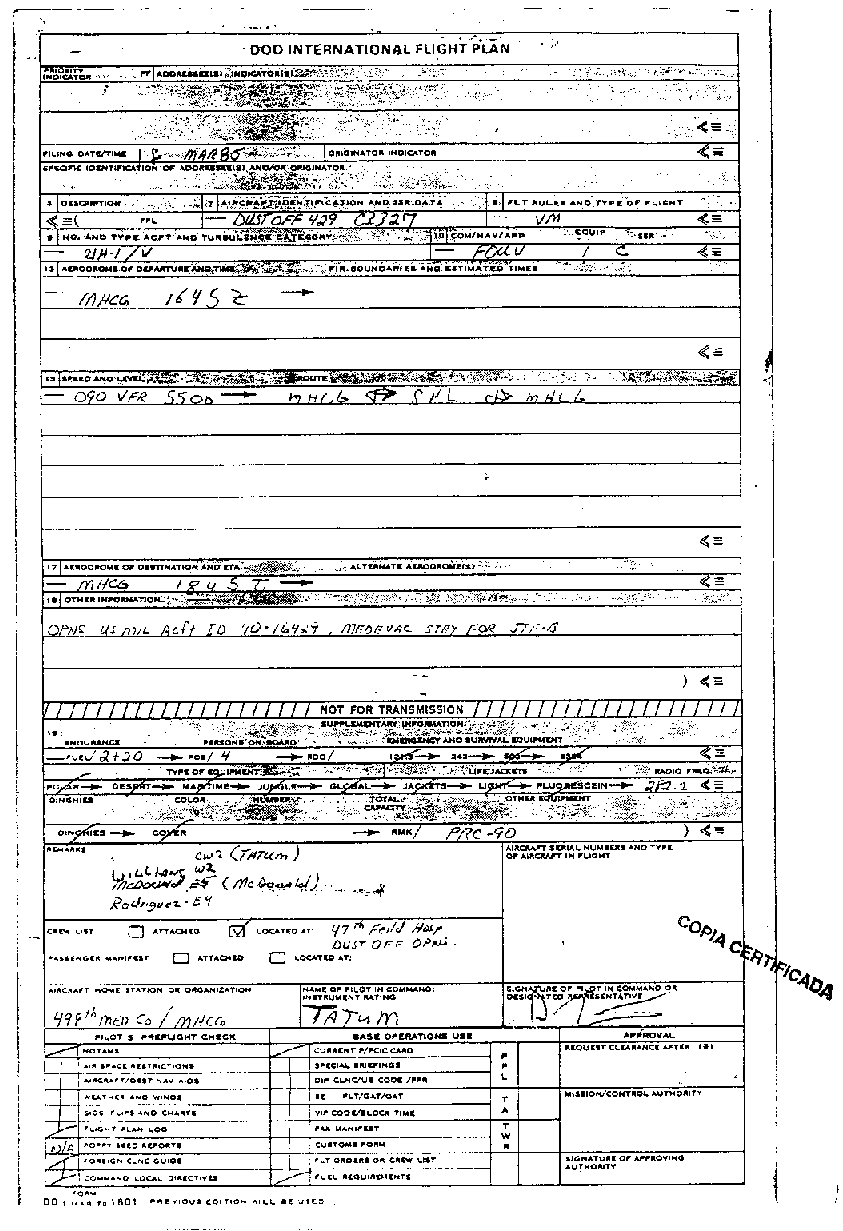 DOD INTERNATIONAL FLIGHT PLAN
PRIORITY INDICATOR FF ADDRESSEE(S) INDICATOR(S)
≪≡
FILING DATE/TIME MAR85 ORIGINATOR INDICATOR ≪≡
SPECIFIC IDENTIFICATION OF ADDRESSEE(S) AND/OR ORIGINATOR
3 DESCRIPTION 7 AIRCRAFT IDENTIFICATION AND SSR DATA 8 FLT RULES AND TYPE OF FLIGHT
≪≡( FPL — DUSTOFF 429 VM ≪≡
9 NO. AND TYPE ACFT AND TURBULENCE CATEGORY 10 COM/NAV/APP EQUIP SSR
— / C ≪≡
13 AERODROME OF DEPARTURE AND TIME FIR BOUNDARIES AND ESTIMATED TIMES
— MHCG 1645 Z →
≪≡
15 SPEED AND LEVEL ROUTE
— 090 VFR 5500 → MHCG MHCG
≪≡
17 AERODROME OF DESTINATION AND ETA ALTERNATE AERODROME(S)
— MHCG 1845 Z → ≪≡
18 OTHER INFORMATION
OPNS US MIL Acft ID MEDEVAC STBY FOR JTF-B
) ≪≡
NOT FOR TRANSMISSION
SUPPLEMENTARY INFORMATION
19
ENDURANCE PERSONS ON BOARD EMERGENCY AND SURVIVAL EQUIPMENT
2+20 → POB/ 4 → RDO/ → 243 → 500 → ≪≡
TYPE OF EQUIPMENT LIFE JACKETS RADIO FREQ.
POLAR → DESERT → MARITIME → JUNGLE → GLOBAL → JACKETS → LIGHT → FLUORESCEIN → ≪≡
DINGHIES COLOR NUMBER TOTAL CAPACITY OTHER EQUIPMENT
DINGHIES → COVER → RMK/ PRC-90 ) ≪≡
REMARKS AIRCRAFT SERIAL NUMBERS AND TYPE OF AIRCRAFT IN FLIGHT
CW2 (TATUM)
WILLIAMS W2
E5 (McDonald)
Rodriguez-E4
CREW LIST ATTACHED LOCATED AT: 47th Feild Hosp
DUST OFF OPNS.
PASSENGER MANIFEST ATTACHED LOCATED AT:
COPIA CERTIFICADA
AIRCRAFT HOME STATION OR ORGANIZATION NAME OF PILOT IN COMMAND: INSTRUMENT RATING SIGNATURE OF PILOT IN COMMAND OR DESIGNATED REPRESENTATIVE
498th MED Co / MHCG TATUM
PILOT'S PREFLIGHT CHECK BASE OPERATIONS USE APPROVAL
NOTAMS CURRENT P/PCIC CARD FPL REQUEST CLEARANCE AFTER
AIR SPACE RESTRICTIONS SPECIAL BRIEFINGS
AIRCRAFT/DEST NAV AIDS DIP CLNC/UE CODE/PPR
WEATHER AND WINDS FLT/GAT/OAT TA MISSION/CONTROL AUTHORITY
SIDS FLIPS AND CHARTS VIP CODE/BLOCK TIME
FLIGHT PLAN LOG PAX MANIFEST TWR
N/A POPPY SEED REPORTS CUSTOMS FORM
FOREIGN CLNC GUIDE FLT ORDERS OR CREW LIST SIGNATURE OF APPROVING AUTHORITY
COMMAND LOCAL DIRECTIVES FUEL REQUIREMENTS
DD FORM 1 MAR 70 1801 PREVIOUS EDITION WILL BE USED